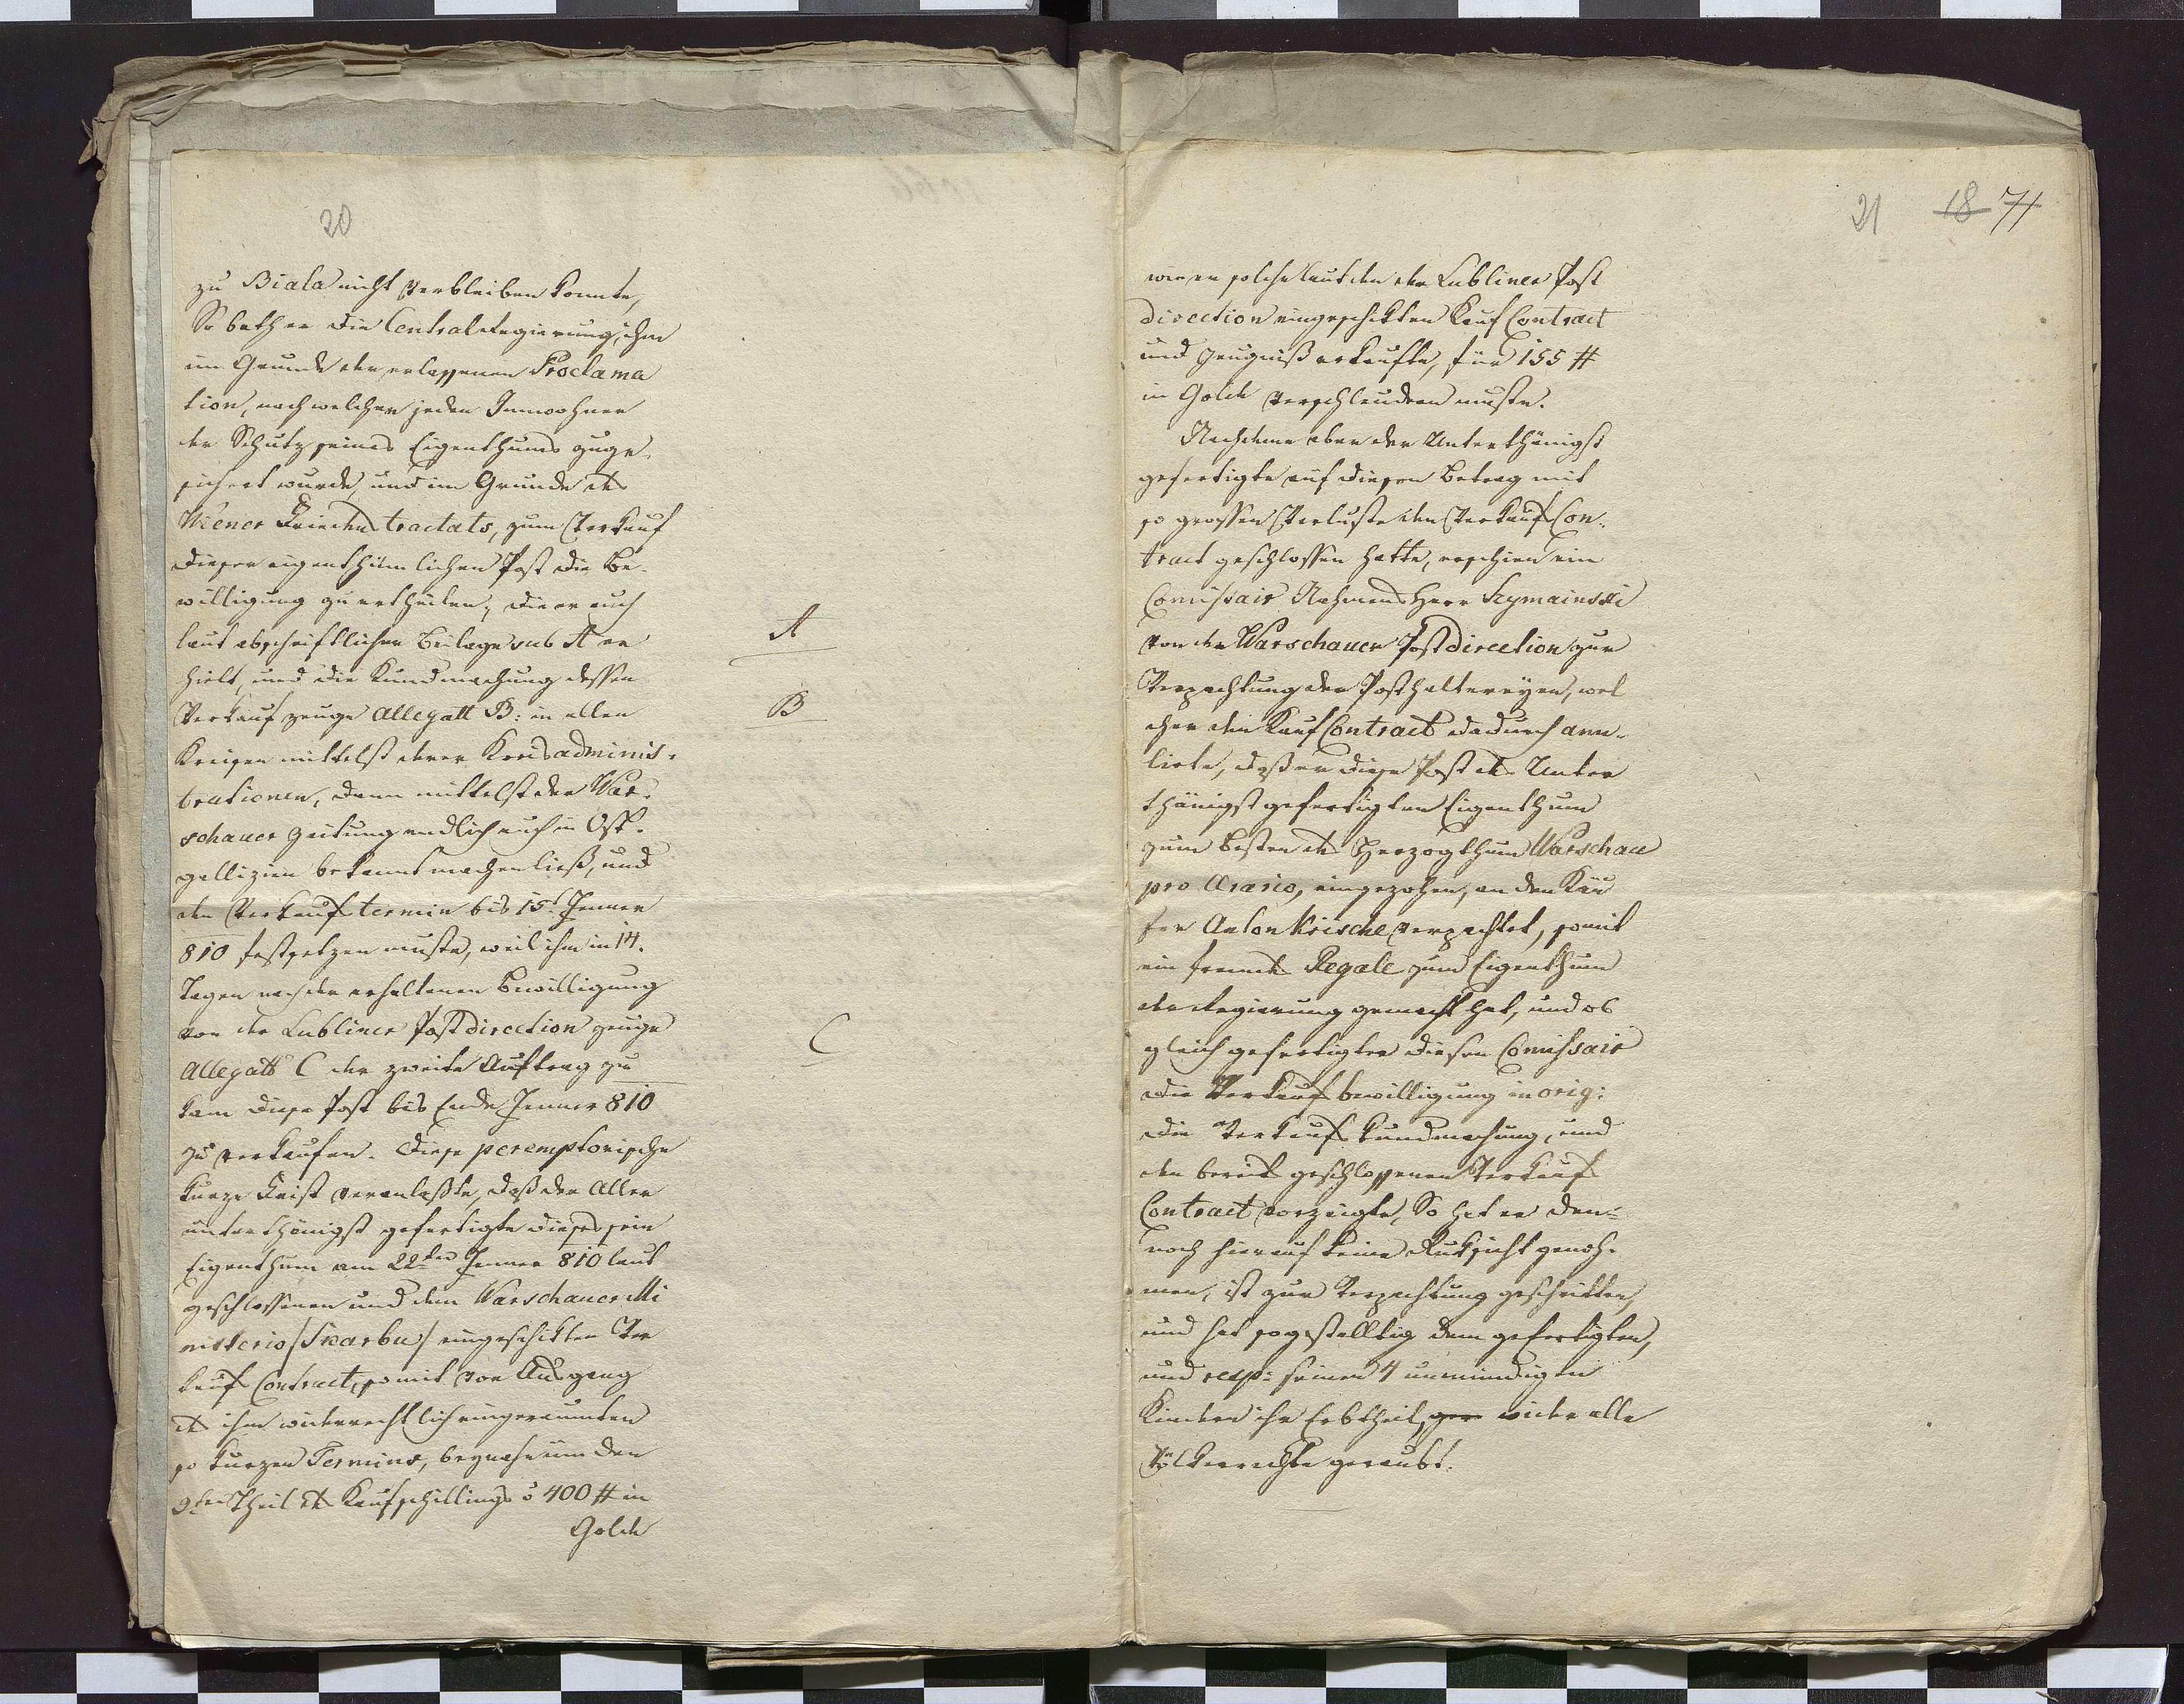 20
zu Biala nicht verbleiben konnte,
So bath er die Central Regierung, ihm
im Grunde der erlassenen Proclama
tion, nach welcher jeden Innwohner
der Schutz seines Eigenthums zuge-
sichert wurde, und im Grunde des
Wiener Friedens tractats, zum Verkauf
dieser eigenthümlichen Post die Be-
willigung zu ertheilen, die er auch
laut abschriftlicher Beilage sub A er
hielt, und die Kundmachung dessen
Verkauf zeuge Allegatt B: in allen
Kreisen mittelst deren Kreisadminis-
trationen, dann mittelst der War-
schauer Zeitung endlich auch in Ost-
gallizien bekannt machen ließ, und
den Verkaufs termin bis 15t Jenner
810 festsetzen muste, weil ihm in 14.
Tagen nach der erhaltenen Bewilligung
von der Lubliner Postdirection zeuge
Allegatt C der zweite Auftrag zu
kam diese Post bis Ende Jenner 810
zu verkaufen. Diese peremptorische
kurze Frist veranlaßte, daß der Aller
unterthänigst gefertigte dieses sein
Eigenthum am 22ten Jenner 810 laut
geschlossenen und dem Warschauer Mi
nisterio /Skarbu/ eingeschikten Ver
kaufs Contract, somit vor Ausgang
des ihm widerrechtlich eingeraumten
so kurzen Termins, beynahe um den
Theil des Kaufschillings à 400 # in
Golde
A
B
C
21 18 71
wie er solche laut den der Lubliner Post
direction eingeschikten Kauf Contract
und Zeugniß erkaufte, für 155 #
in Golde verschleudern muste.
Nachdeme aber der Unterthänigst
gefertigte auf diesen Betrag mit
so grossen Verluste den Verkaufs Con-
tract geschlossen hatte, erschien ein
Comissair Nahmens Herr Szymainski
von der Warschauer Postdirection zur
Verpachtung der Posthaltereyen, wel
cher den Kauf Contract dadurch anu-
lirte, daß er diese Post des Unter
thänigst gefertigten Eigenthum
zum Besten des Herzogthum Warschau
pro Arario, eingezohen, an den Käu
fer Anton Krische verpachtet, somit
ein fremdes Regale zum Eigenthum
der Regierung gemacht hat, und ob
gleich gefertigter diesen Comissair
die Verkaufs bewilligung in orig:
die Verkaufs kundmachung, und
den bereits geschlossenen Verkaufs
Contract vorzeigte, So hat er den-
noch hierauf keine Ruksicht genoh-
men, ist zur Verpachtung geschritten,
und hat sogestalltig dem gefertigten,
und resp: seinen 4 unmündigen
Kindern ihr Erbtheil, wider alle
Völkerrechte geraubt.